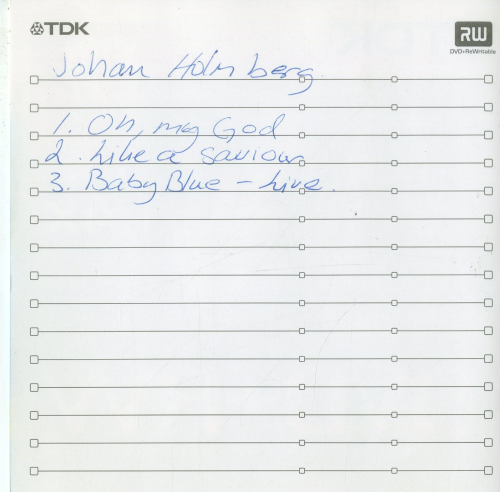 TDK
RW
DVD+ReWritable
Johan Holmberg
1. Oh, my God
2. Like a saviour
3. Baby Blue - Live.